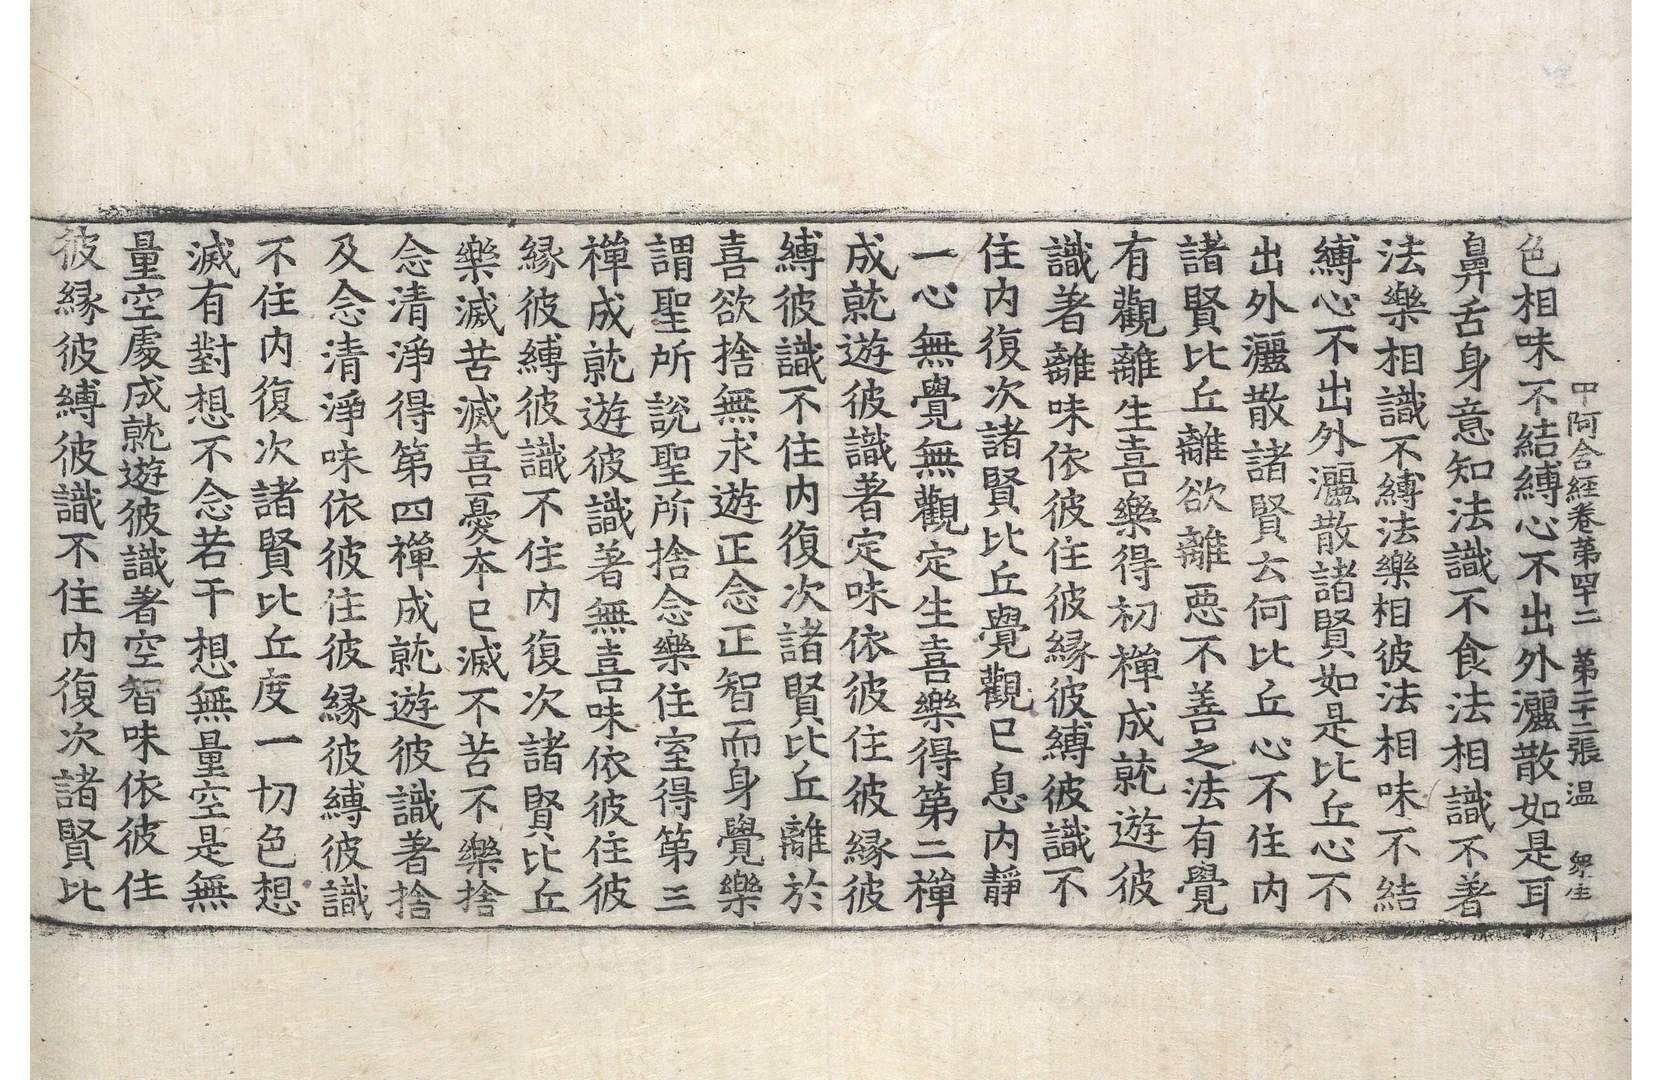 中阿含経卷第四十二 第二十二張 温
色相味不結縛心不出外灑散如是耳
鼻舌身意知法識不食法相識不著
法樂相識不縛法樂相彼法相味不結
縛心不出外灑散諸賢如是比丘心不
出外灑散諸賢云何比丘心不住内
諸賢比丘離欲離惡不善之法有覺
有觀離生喜樂得初禪成就遊彼
識著離味依彼住彼緣彼縛彼識不
住内復次諸賢比丘覺觀已息内靜
一心無覺無觀定生喜樂得第二禪
成就遊彼識著定味依彼住彼緣彼
縛彼識不住内復次諸賢比丘離於
喜欲捨無求遊正念正智而身覺樂
謂聖所說聖所捨念樂住室得第三
禪成就遊彼識著無喜味依彼住彼
緣彼縛彼識不住内復次諸賢比丘
樂滅苦滅喜憂本已滅不苦不樂捨
念清淨得第四禪成就遊彼識著捨
及念清淨味依彼住彼緣彼縛彼識
不住内復次諸賢比丘度一切色想
滅有對想不念若干想無量空是無
量空處成就遊彼識著空智味依彼住
彼緣彼縛彼識不住内復次諸賢比